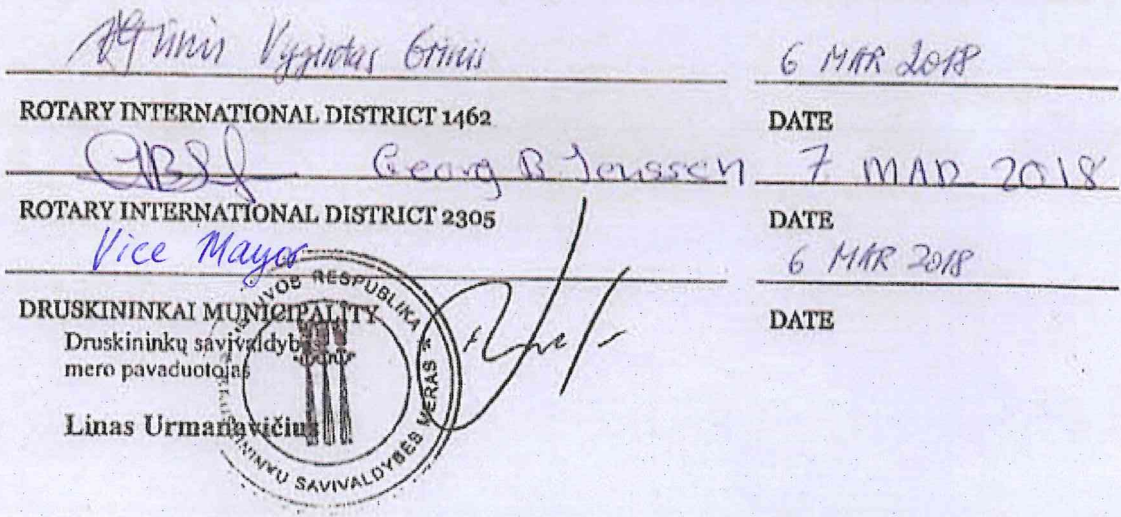 Vygintas Grinis 6 MAR 2018
ROTARY INTERNATIONAL DISTRICT 1462 DATE
Georg B Jenssen 7 MAR 2018
ROTARY INTERNATIONAL DISTRICT 2305 DATE
Vice Mayor 6 MAR 2018
DRUSKININKAI MUNICIPALITY DATE
Druskininkų savivaldybės
mero pavaduotojas
Linas Urmanavičius
RESPUBLIKA * MERAS
SAVIVALDYBĖS